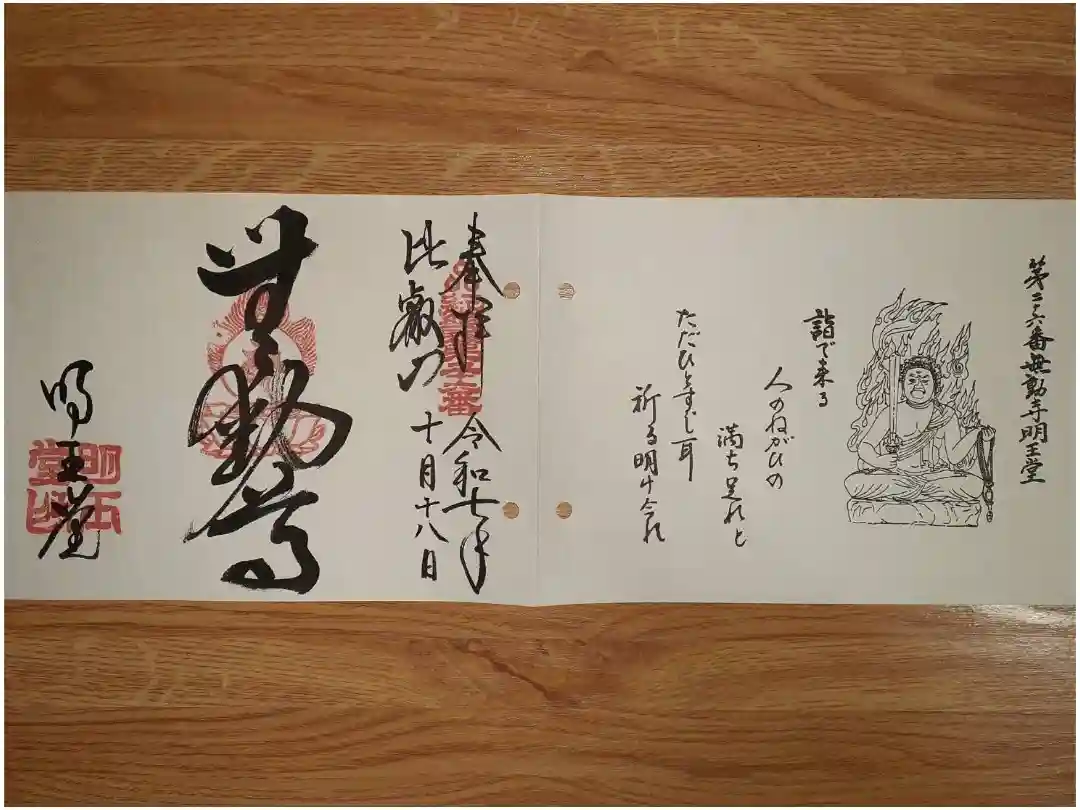 第二六番無動寺明王堂
詣で来る
人のねがひの
満ち足れと
ただひとすじ耳
祈る明け
奉拝 令和七年
比叡山 十月十八日
無動尊
明王堂
明王堂印